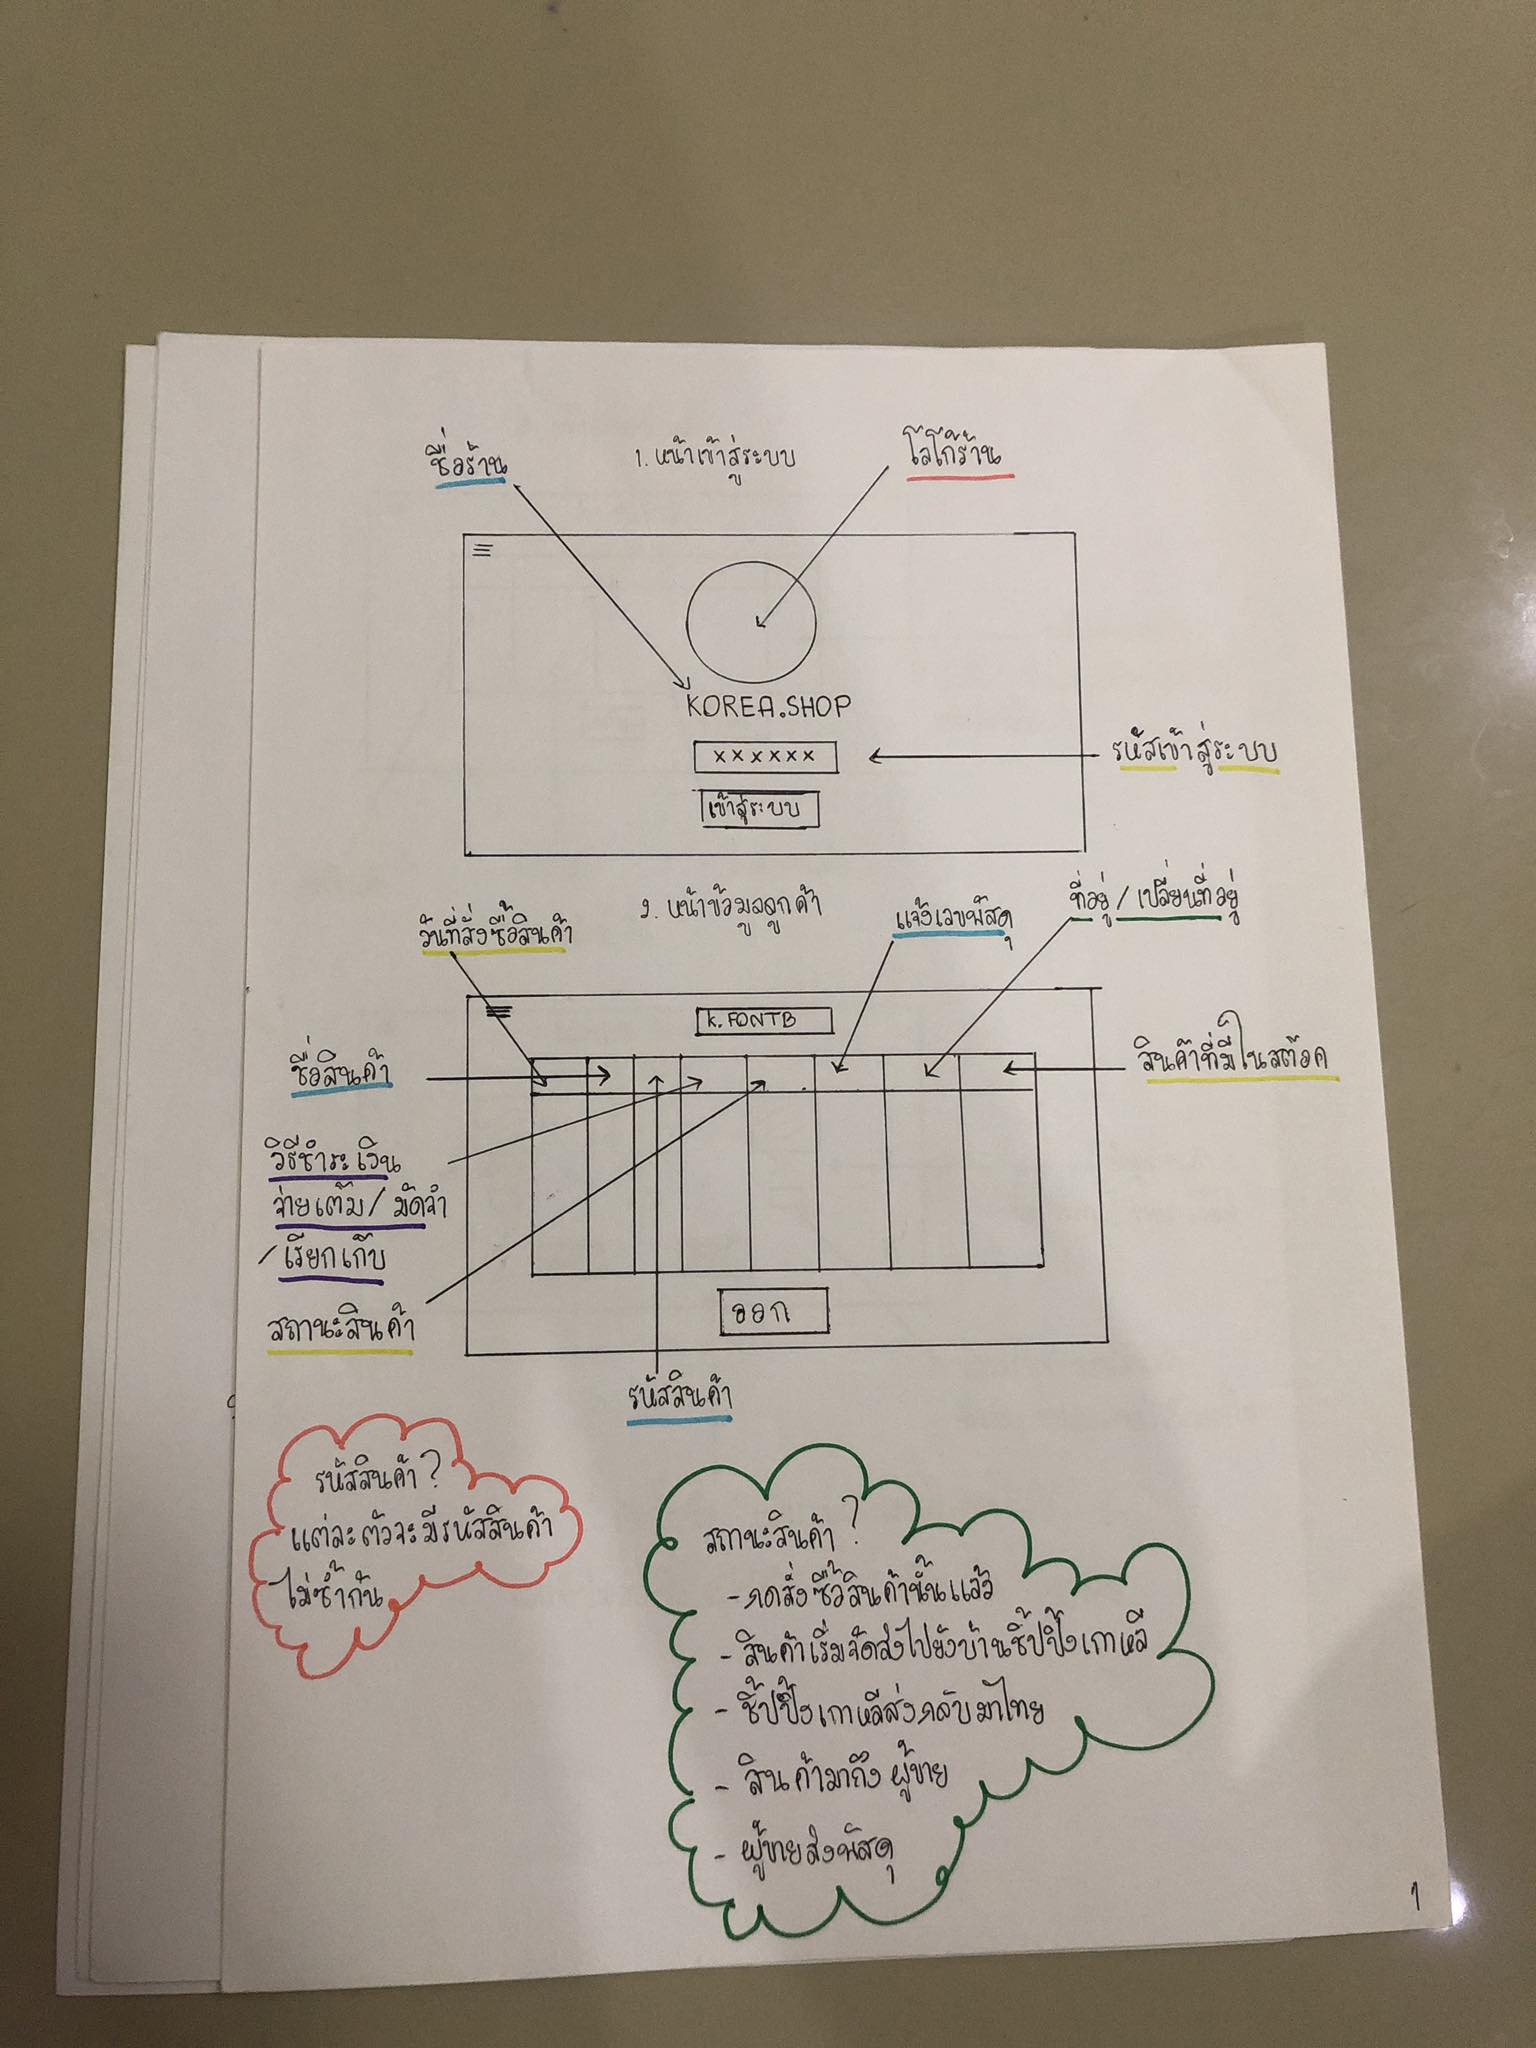 ชื่อร้าน
1. หน้าเข้าสู่ระบบ
โลโก้ร้าน
KOREA.SHOP
xxxxxx
รหัสเข้าสู่ระบบ
เข้าสู่ระบบ
2. หน้าข้อมูลลูกค้า
วันที่สั่งซื้อสินค้า
แจ้งเลขพัสดุ
ที่อยู่ / เปลี่ยนที่อยู่
K. FONTB
ชื่อสินค้า
สินค้าที่มีในสต๊อค
วิธีชำระเงิน
จ่ายเต็ม / มัดจำ
/ เรียกเก็บ
สถานะสินค้า
ออก
รหัสสินค้า
รหัสสินค้า ?
แต่ละตัวจะมีรหัสสินค้า
ไม่ซ้ำกัน
สถานะสินค้า ?
- กดสั่งซื้อสินค้านั้นแล้ว
- สินค้าเริ่มจัดส่งไปยังบ้านชิ้ปปิ้งเกาหลี
- ชิ้ปปิ้งเกาหลีส่งกลับมาไทย
- สินค้ามาถึงผู้ขาย
- ผู้ขายส่งพัสดุ
1